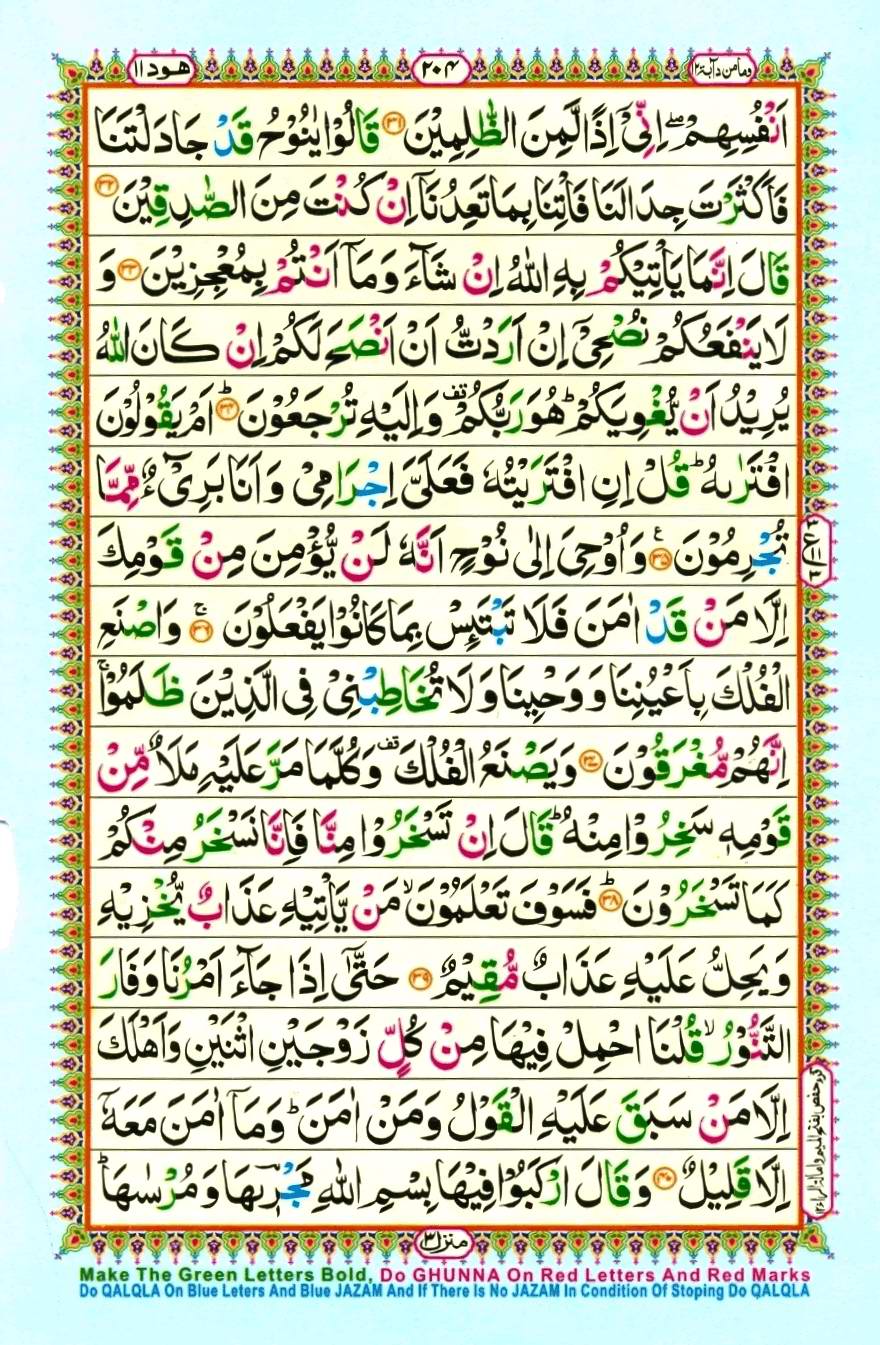 وما من دآبة ١٢
٢٠٤
هود ١١
اَنْفُسِهِمْ ۖۚ اِنِّیْۤ اِذًا لَّمِنَ الظّٰلِمِیْنَ ۳۱ قَالُوْا یٰنُوْحُ قَدْ جَادَلْتَنَا
فَاَكْثَرْتَ جِدَالَنَا فَاْتِنَا بِمَا تَعِدُنَاۤ اِنْ كُنْتَ مِنَ الصّٰدِقِیْنَ ۳۲
قَالَ اِنَّمَا یَاْتِیْكُمْ بِهِ اللّٰهُ اِنْ شَآءَ وَمَاۤ اَنْتُمْ بِمُعْجِزِیْنَ ۳۳ وَ
لَا یَنْفَعُكُمْ نُصْحِیْۤ اِنْ اَرَدْتُّ اَنْ اَنْصَحَ لَكُمْ اِنْ كَانَ اللّٰهُ
یُرِیْدُ اَنْ یُّغْوِیَكُمْ ؕ هُوَ رَبُّكُمْ قف وَاِلَیْهِ تُرْجَعُوْنَ ؕ ۳۴ اَمْ یَقُوْلُوْنَ
افْتَرٰىهُ ؕ قُلْ اِنِ افْتَرَیْتُهٗ فَعَلَیَّ اِجْرَامِیْ وَاَنَا بَرِیْٓءٌ مِّمَّا
تُجْرِمُوْنَ ۳۵ ع وَاُوْحِیَ اِلٰی نُوْحٍ اَنَّهٗ لَنْ یُّؤْمِنَ مِنْ قَوْمِكَ
اِلَّا مَنْ قَدْ اٰمَنَ فَلَا تَبْتَئِسْ بِمَا كَانُوْا یَفْعَلُوْنَ ۚۖ ۳۶ وَاصْنَعِ
الْفُلْكَ بِاَعْیُنِنَا وَوَحْیِنَا وَلَا تُخَاطِبْنِیْ فِی الَّذِیْنَ ظَلَمُوْا ۚ
اِنَّهُمْ مُّغْرَقُوْنَ ۳۷ وَیَصْنَعُ الْفُلْكَ قف وَكُلَّمَا مَرَّ عَلَیْهِ مَلَاٌ مِّنْ
قَوْمِهٖ سَخِرُوْا مِنْهُ ؕ قَالَ اِنْ تَسْخَرُوْا مِنَّا فَاِنَّا نَسْخَرُ مِنْكُمْ
كَمَا تَسْخَرُوْنَ ؕ ۳۸ فَسَوْفَ تَعْلَمُوْنَ ۙ مَنْ یَّاْتِیْهِ عَذَابٌ یُّخْزِیْهِ
وَیَحِلُّ عَلَیْهِ عَذَابٌ مُّقِیْمٌ ۳۹ حَتّٰۤی اِذَا جَآءَ اَمْرُنَا وَفَارَ
التَّنُّوْرُ ۙ قُلْنَا احْمِلْ فِیْهَا مِنْ كُلٍّ زَوْجَیْنِ اثْنَیْنِ وَاَهْلَكَ
اِلَّا مَنْ سَبَقَ عَلَیْهِ الْقَوْلُ وَمَنْ اٰمَنَ ؕ وَمَاۤ اٰمَنَ مَعَهٗۤ
اِلَّا قَلِیْلٌ ۴۰ وَقَالَ ارْكَبُوْا فِیْهَا بِسْمِ اللّٰهِ مَجْؔرٖىهَا وَمُرْسٰىهَا ؕ
منزل ٣
Make The Green Letters Bold, Do GHUNNA On Red Letters And Red Marks
Do QALQLA On Blue Leters And Blue JAZAM And If There Is No JAZAM In Condition Of Stoping Do QALQLA